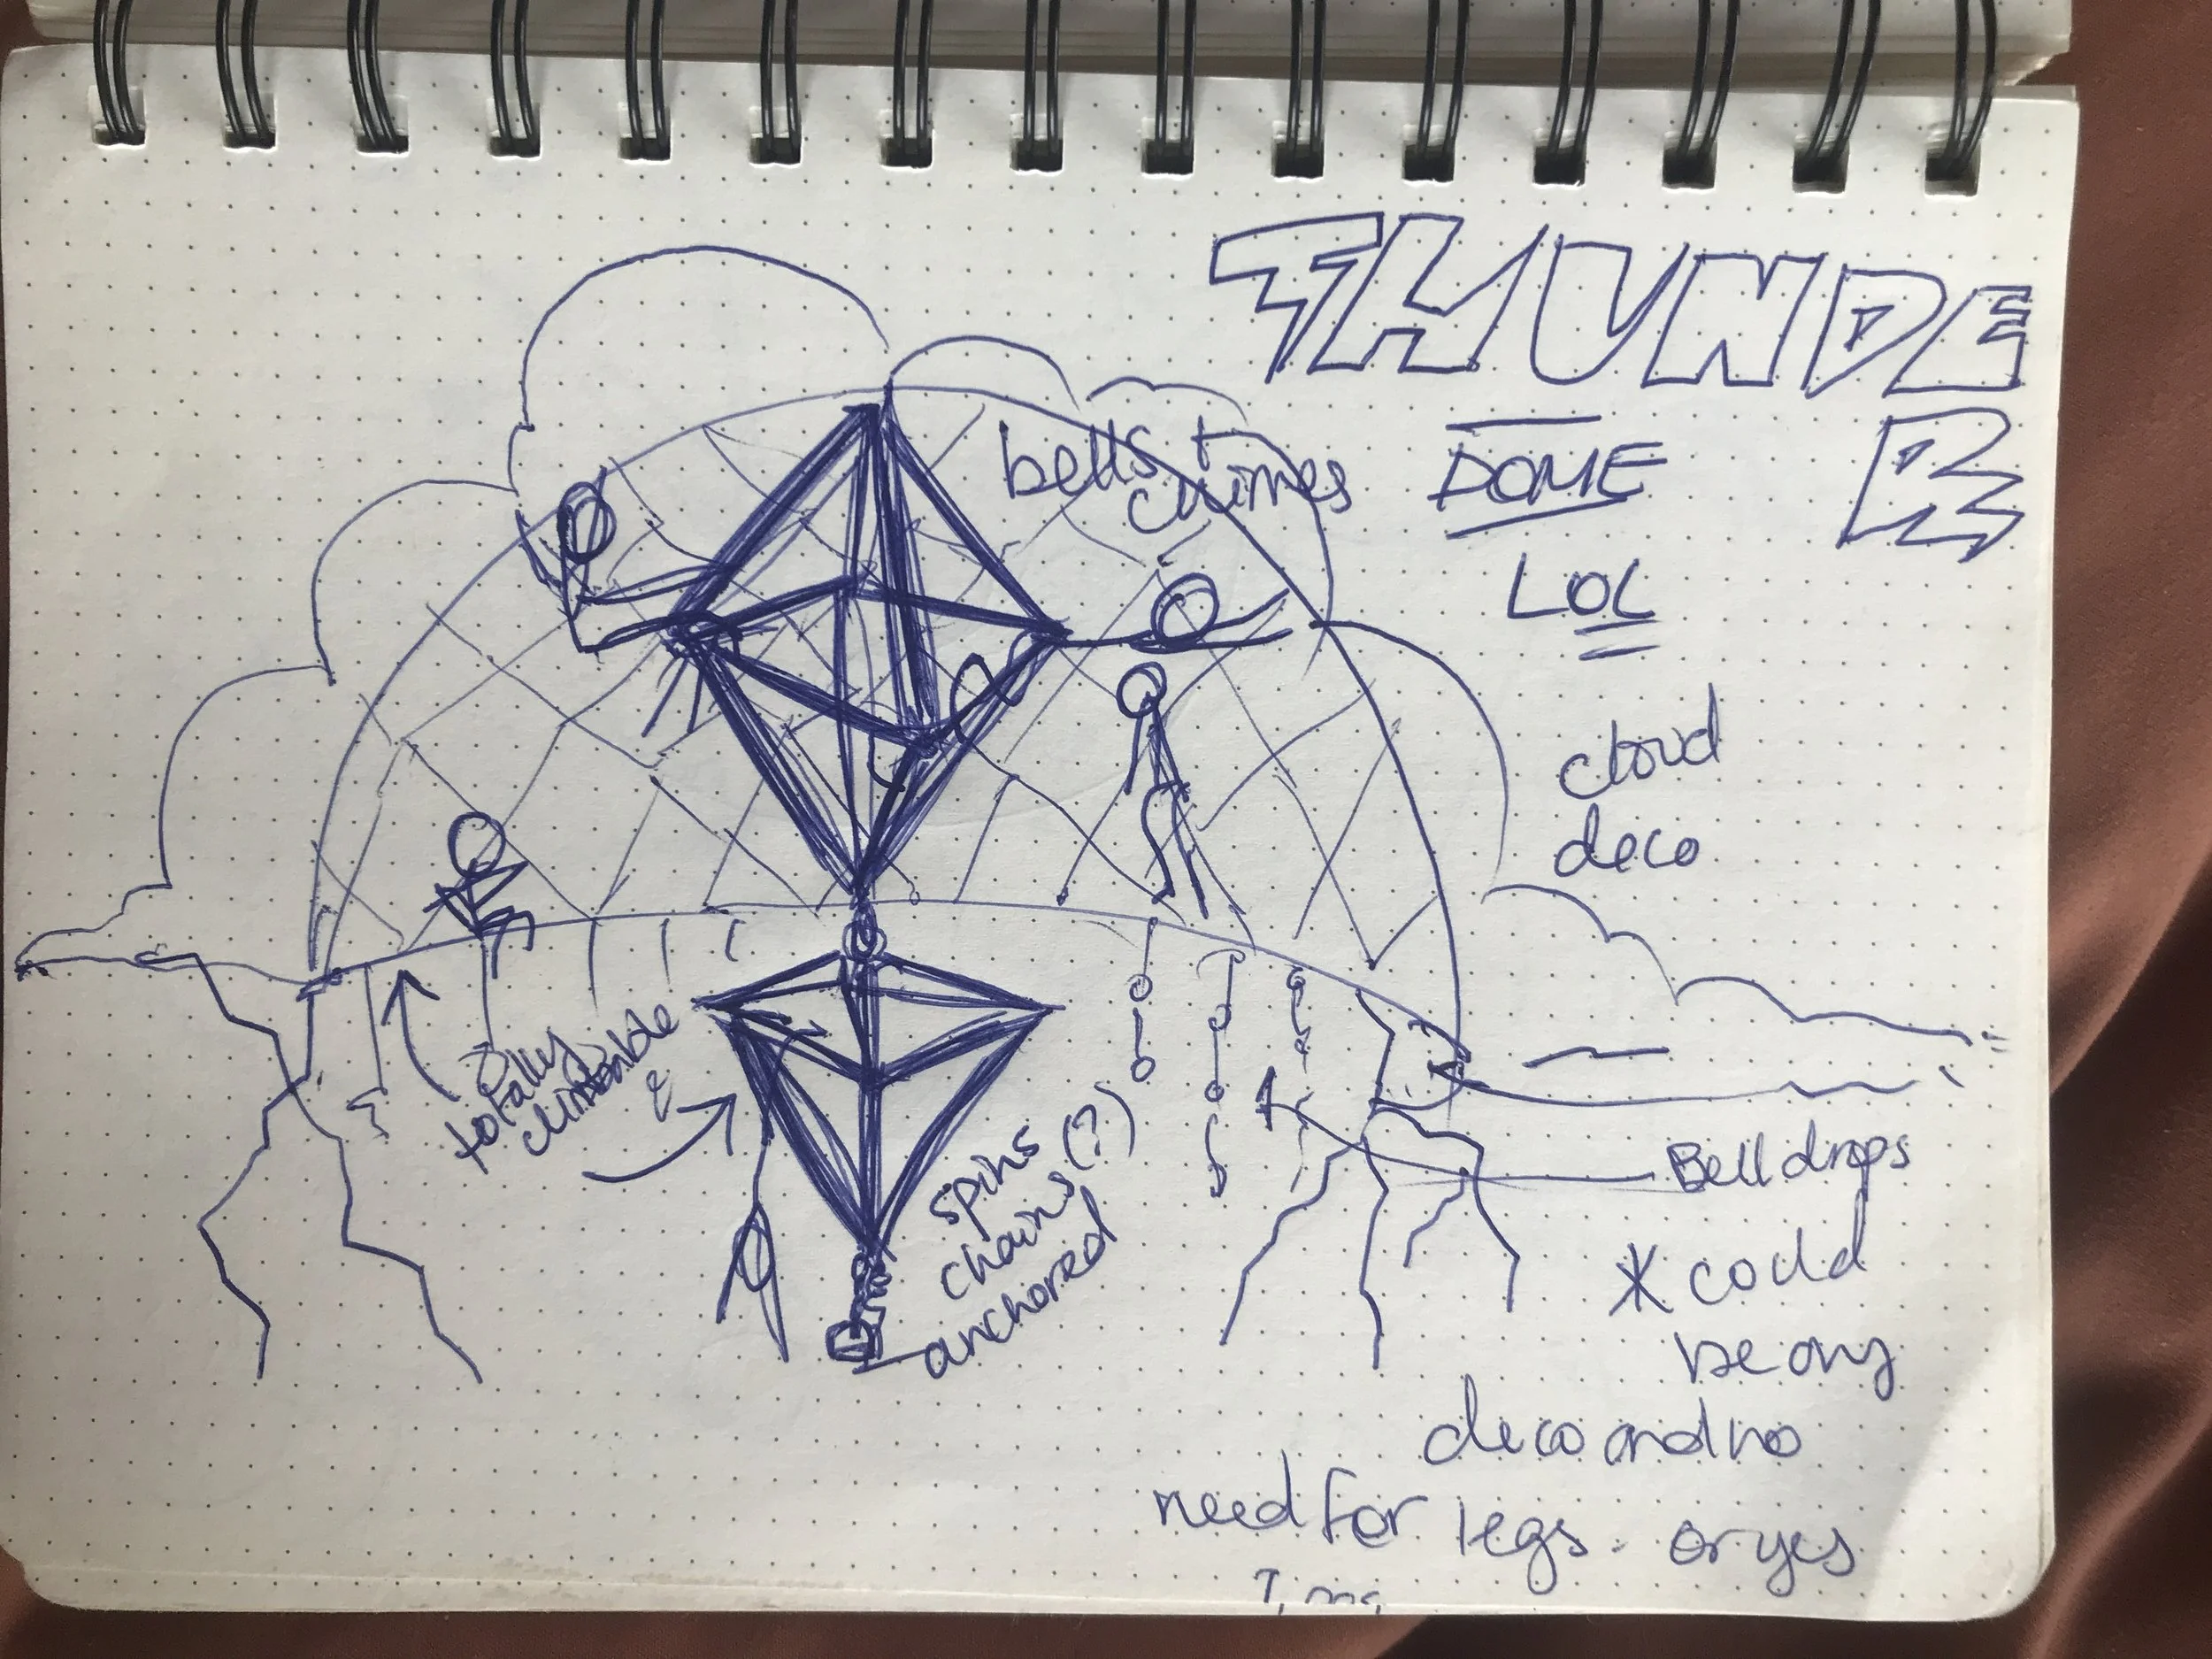 THUNDE
R
DOME
LOL
bells +
chimes
cloud
deco
totally
climbable
spins
chains (?)
anchored
Bell drops
* could
be any
deco and no
need for legs. or yes